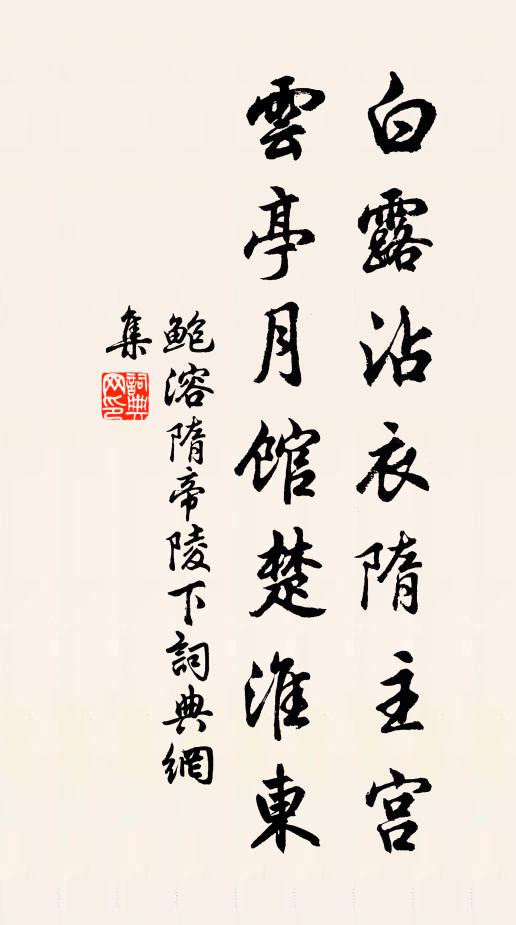 白露沾衣隋主宫
雲亭月館楚淮東
鮑溶隋帝陵下詞典網
集
詞典
网印